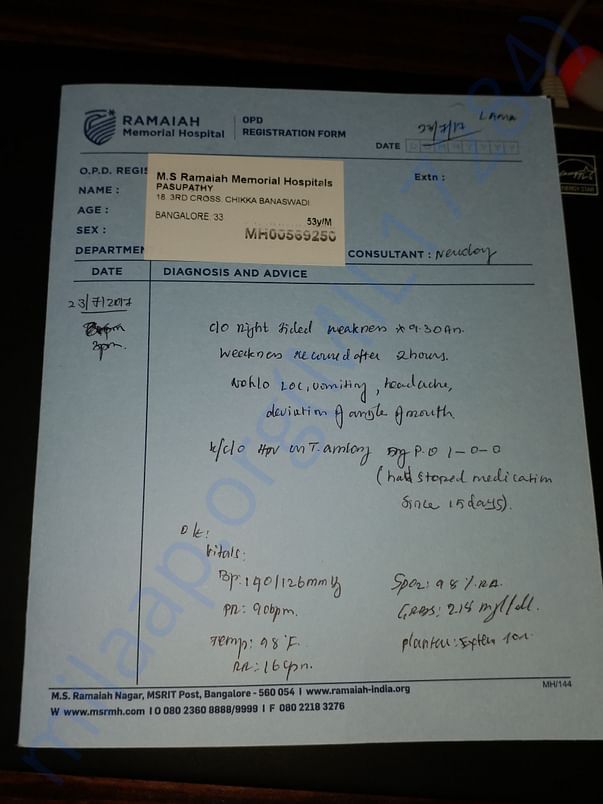 RAMAIAH
Memorial Hospital
OPD
REGISTRATION FORM
LAMA
23/7/17
DATE D D M M Y Y Y Y
O.P.D. REGIS
Extn :
M.S Ramaiah Memorial Hospitals
NAME :
PASUPATHY
18. 3RD CROSS. CHIKKA BANASWADI
AGE :
BANGALORE 33
53y/M
SEX :
MH00569250
DEPARTMEN
CONSULTANT :
DATE
DIAGNOSIS AND ADVICE
23/7/2017
3pm.
c/o right sided weakness x 9.30Am.
weakness recovered after 2 hours.
No h/o LOC, vomiting, headache,
deviation of angle of mouth
k/c/o HTN on T. amlong 5mg P.O 1-0-0
(had stoped medication
since 15 days).
O/E:
Vitals:
Bp: 190/126mmHg
Spo2: 98 %. RA.
PR: 90bpm.
GRBS: 218 mg/dl.
Temp: 98°F.
plantar: Extensor
RR: 16cpm.
MH/144
M.S. Ramaiah Nagar, MSRIT Post, Bangalore - 560 054 I www.ramaiah-india.org
W www.msrmh.com I O 080 2360 8888/9999 I F 080 2218 3276
ENERGY STAR
milaap.org(MIL117284)